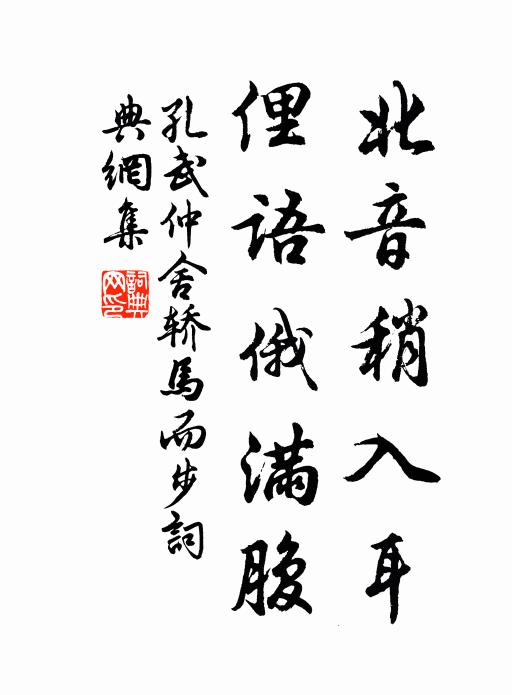 北音稍入耳
俚语俄满腹
孔武仲舍轿馬而步詞
典網集
詞典
网印